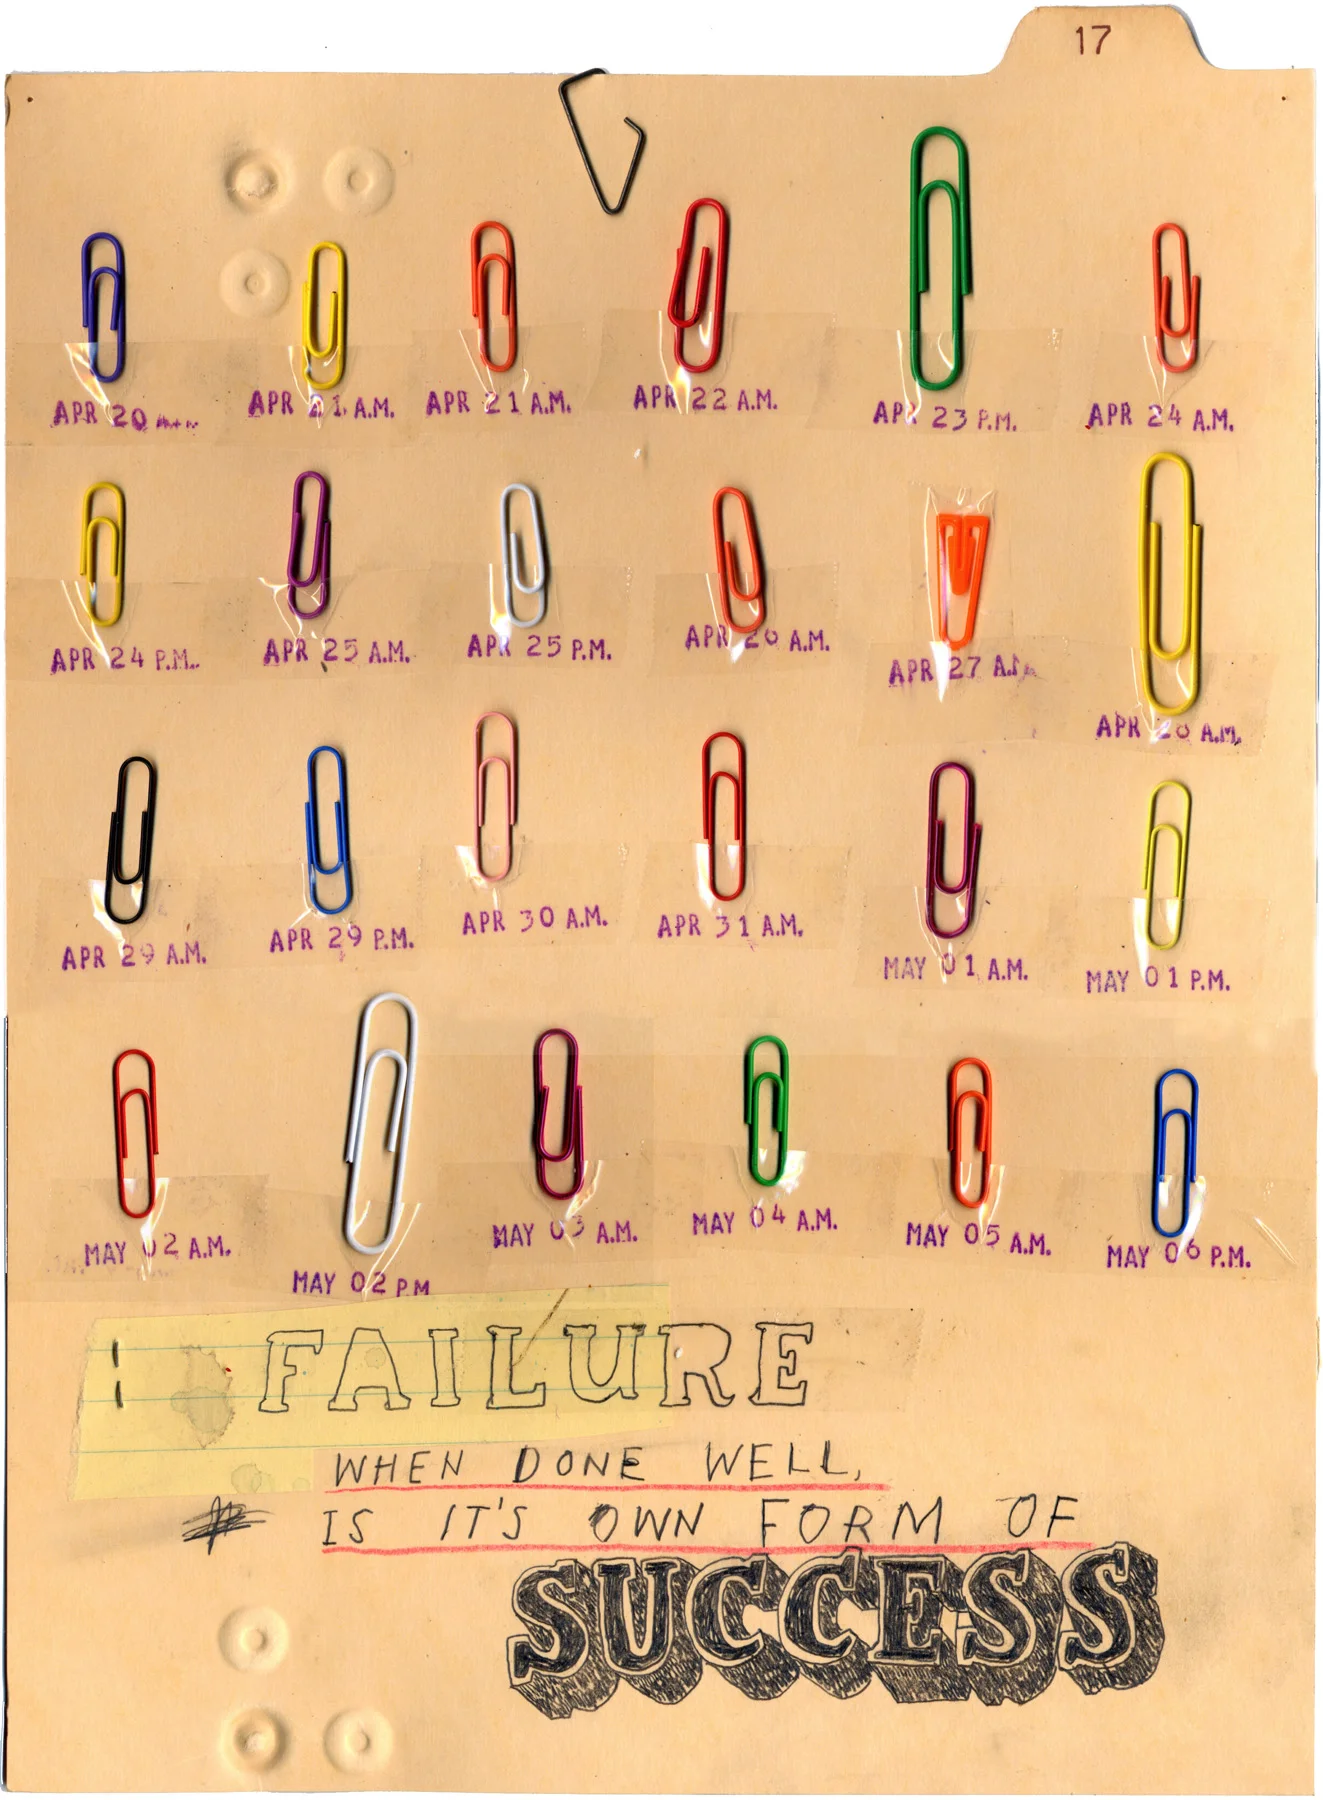 17
APR 20 A.M. APR 21 A.M. APR 21 A.M. APR 22 A.M. APR 23 P.M. APR 24 A.M.
APR 24 P.M. APR 25 A.M. APR 25 P.M. APR 26 A.M. APR 27 A.M. APR 28 A.M.
APR 29 A.M. APR 29 P.M. APR 30 A.M. APR 31 A.M. MAY 01 A.M. MAY 01 P.M.
MAY 02 A.M. MAY 02 P.M MAY 03 A.M. MAY 04 A.M. MAY 05 A.M. MAY 06 P.M.
FAILURE
WHEN DONE WELL,
IS IT'S OWN FORM OF
SUCCESS